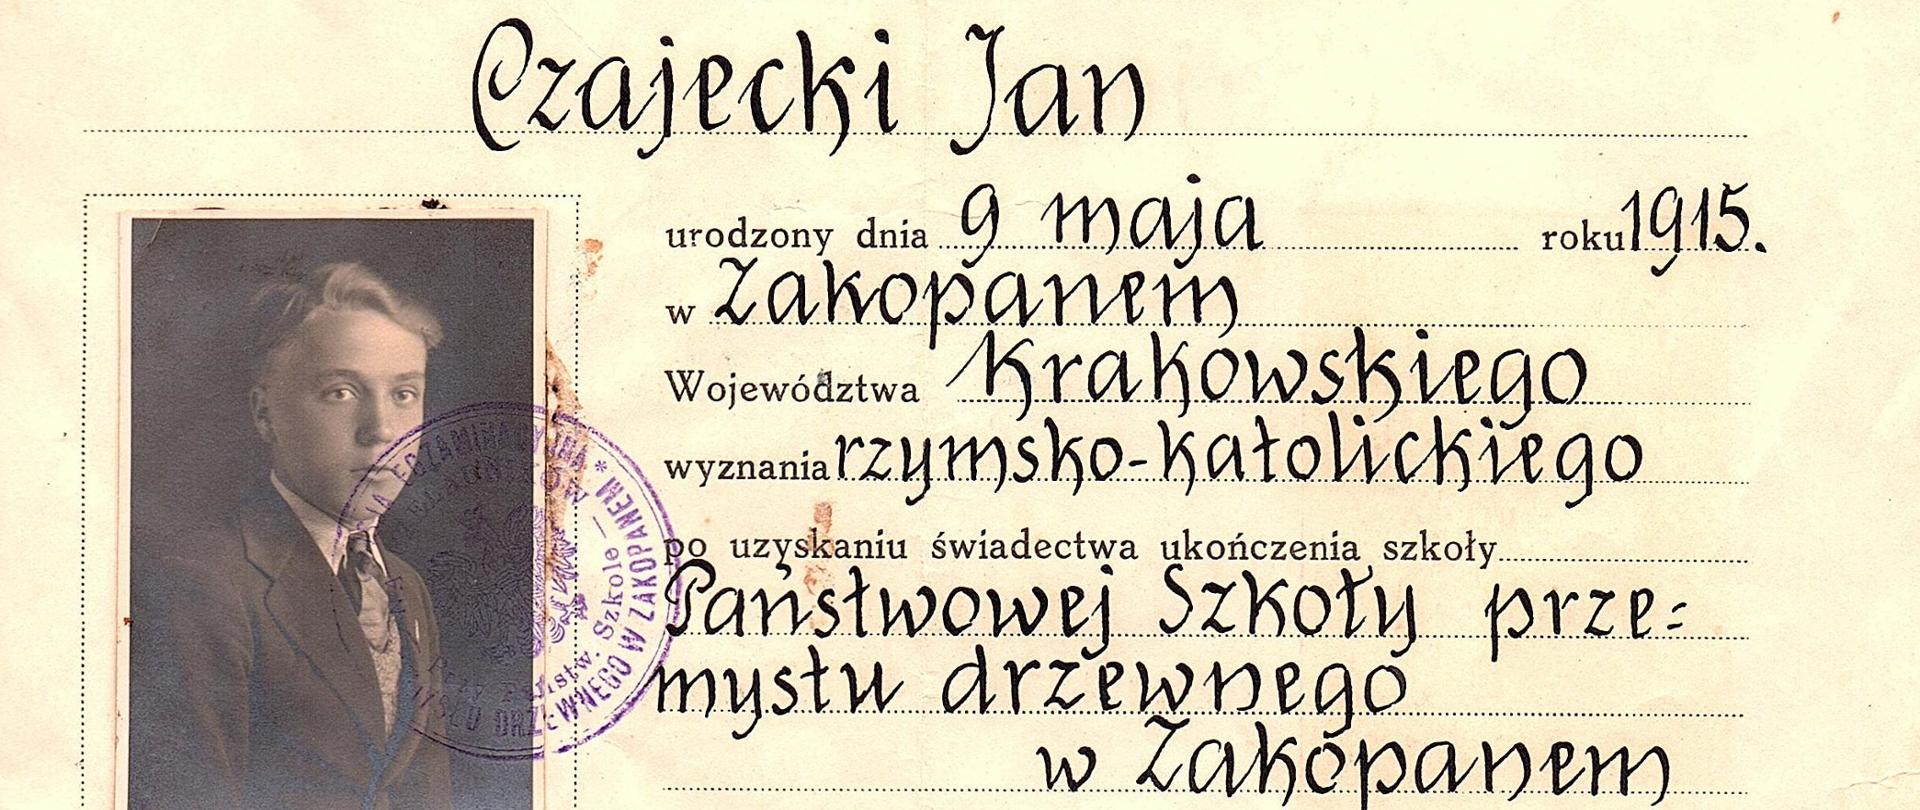 Czajecki Jan
urodzony dnia 9 maja roku 1915.
w Zakopanem
Województwa Krakowskiego
wyznania rzymsko-katolickiego
po uzyskaniu świadectwa ukończenia szkoły
Państwowej Szkoły prze=
mysłu drzewnego
w Zakopanem
EGZAMINACYJNA * 
PRZY Państw. Szkole —
DRZEWNEGO W ZAKOPANEM